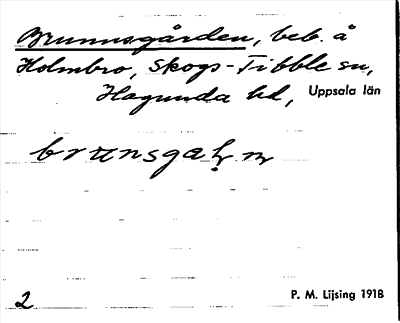 Brunnsgården, beb. å
Holmbro, Skogs-Tibble sn,
Hagunda hd, Uppsala län
2 P. M. Lijsing 1918